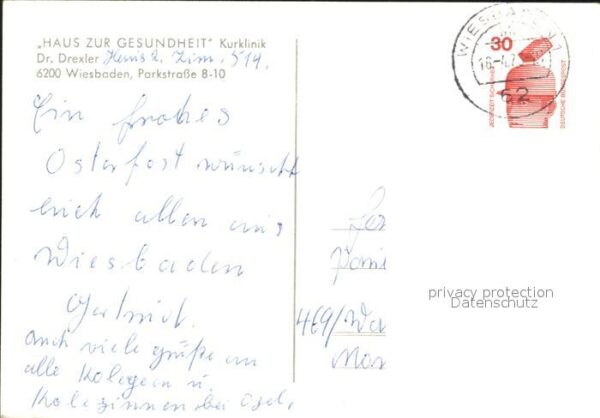 „HAUS ZUR GESUNDHEIT" Kurklinik
Dr. Drexler Haus 2, Zim. 514.
6200 Wiesbaden, Parkstraße 8-10
Ein frohes
Osterfest wünscht
euch allen aus
Wiesbaden
auch viele grüße an
alle Kolegen u.
Kolеginnen bei
WIESBADEN 1
16.-4.7
62
30
JEDERZEIT SICHERHEIT
DEUTSCHE BUNDESPOST
Fam
469/
privacy protection
Datenschutz